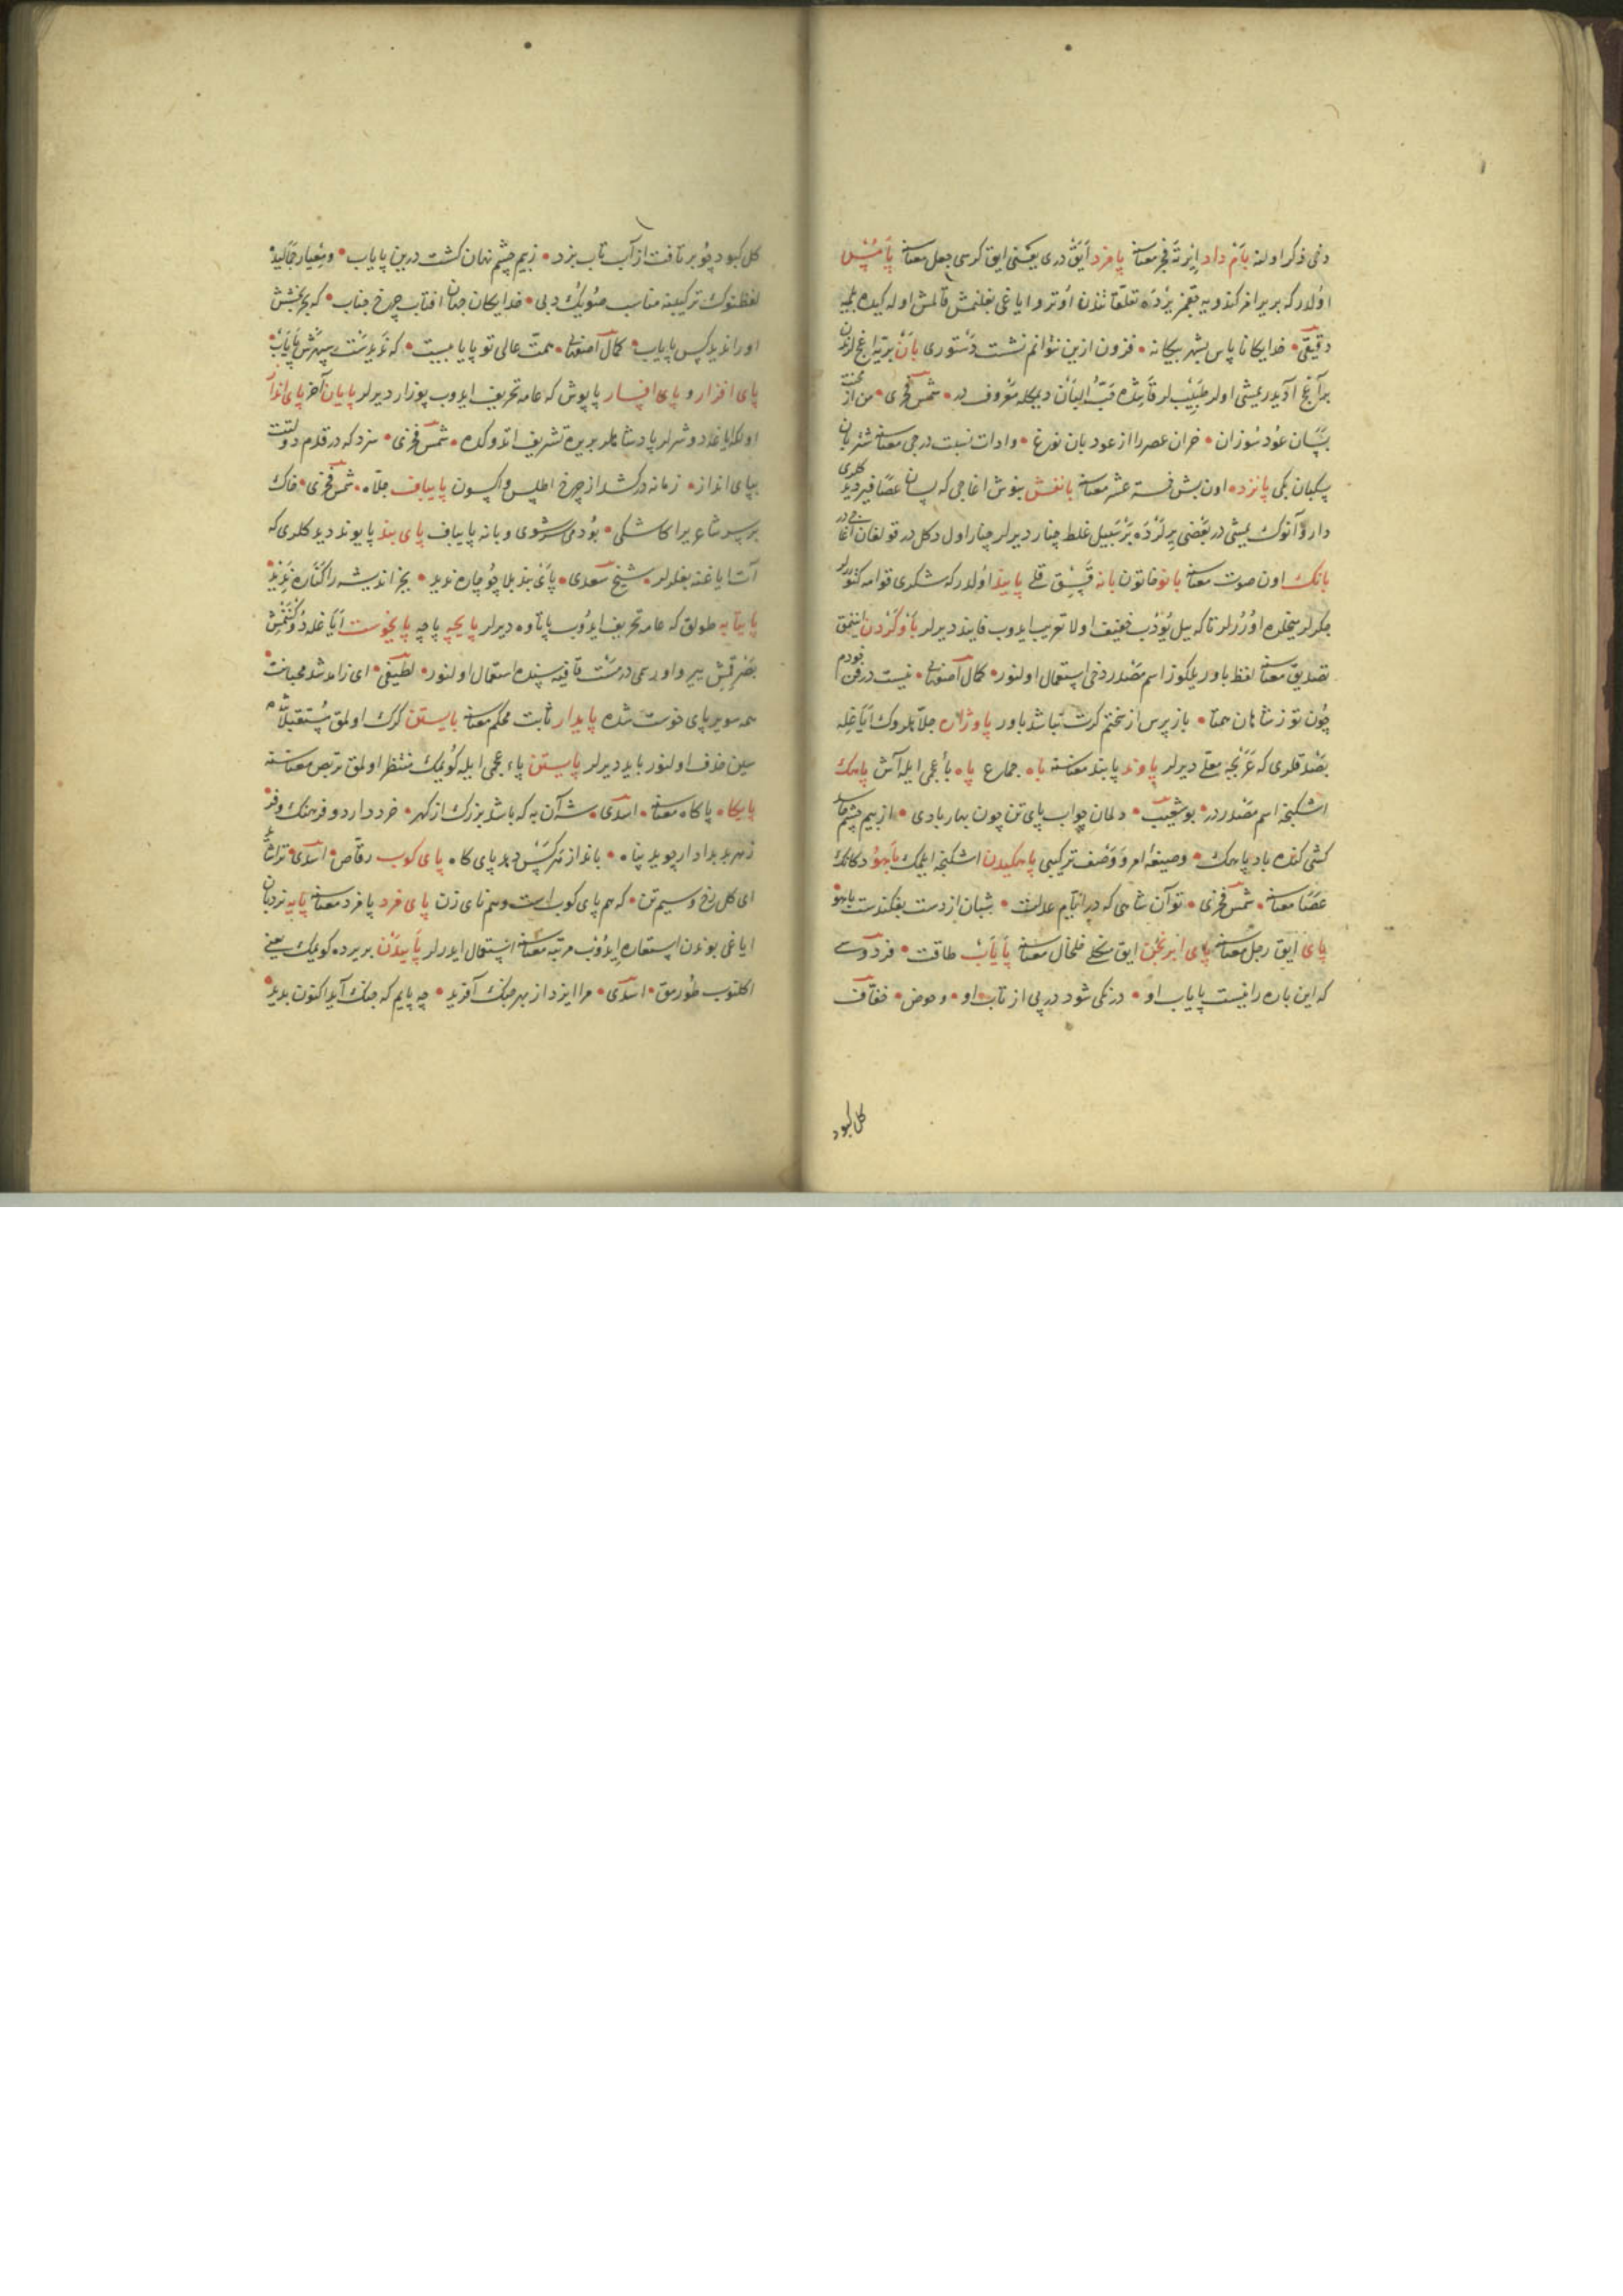 دخی ذکر اولنه بام داد ایرته فجر معناسنه پامزد ایق دری یعنی ایق کرسی جعل معناسنه پامس
اولدر که بریر افر کندو یه بر ده تعلقاتندن اوترو ایاغی بغلنمش قالمش اوله کیده بیلمیه
دقیقی خدایکانا پاس بشهر بیکانه فزون ازین نتوانم نشست دستوری بان بر تیره اغج
بر آغج آدیدر یمشی اولر طبیبلر قاتنده حب البان دیمکله معروف در شمس فخری من از
بسان عود سوزان خران عصر را از عود بان نوزع و ادات نسبت در جی معناسنه شتربان
سکبان بکی پانزده اون بش خمسة عشر معناسنه بانغش بنوش اغاجی که لسان عصافیر دیدکلری
دارو آنوک یمشی در بعضی یرلرده بر سبیل غلط چنار دیرلر چنار اول دکل در قولغان آغاجی در
بانک اون صوت معناسنه بانو خاتون بانه پانیذ اولدر که شکری قوامه کتورلر
چکرلر میخلره اورلر تا که بیل یوزب خفیف اولا تعریب ایدوب فانیذ دیرلر باور کردن اینانمق
تصدیق معناسنه لفظ باور یلکوز اسم مصدر دخی استعمال اولنور کمال اصفهانی نیست در فن خودم
چون تو ز شاهان همتا باز پرس از سختم کرت نباشد باور پاوژاره جلاهلروک ایاغله
بصدقلری که عربجه دیرلر پاوند پابند معناسنه باه جماع پاه باء عجمی ایله آش پاهک
اشکنجه اسم مصدر در بو شعیب دلمان چواب پای تن چون بهار بادی از بیم چشم حاسد
کش کنده باد پاهک و صیغه امر و وصف ترکیبی پاهکیدن اشکنجه ایلمک باهو دکانک
عصا معناسنه شمس فخری تو آن شاهی که در ایام عدلت شبان از دست بفکندست باهو
پای ایق رجل معناسنه پای ابرنجن ایق خلخال معناسنه پایاب طاقت فردوسی
که این باره را نیست پایاب او درنکی شود در پی از تاب او و حوض خفاف
کل کبود
کل کبود چو بر تافت از آب تاب بزد زیم چشم نهان کشت در بن پایاب و معیار جمالیده
لفظنوک ترکیبنه مناسب صویک دبی خدایکان جهان افتاب چرخ جناب که بحر بخشش
او را ندید کس پایاب کمال اصفهانی همت عالی تو پایابیست که ندیدست سپهرش پایاب
پای افزار و پای افسار پاپوش که عامه تحریف ایدوب پوزار دیرلر پایان آخر پای انداز
اولکه ایاغه دوشرلر پادشاهلر بر یره تشریف اتدوکده شمس فخری سزد که در قدم دولتت
بپای انداز زمانه در کشد از چرخ اطلس و اکسون پایباف جلاه شمس فخری خاک
بر سر شاعر برا کاشکی بودمی شوی و یا نه پایباف پای بند پایوند دیدکلری که
آت ایاغنه بغلرلر شیخ سعدی پای بند بلا چو چاره ندید بجز اندیشه را کناره ندید
پایتابه طولق که عامه تحریف ایدوب پاتاوه دیرلر پایچه پاچه پایخوست ایاغله دوکنمش
بصرقمش یر و او رسمی در مست قافیه سنده استعمال اولنور لطیفی ای زاهد شد محبانت
همه سویر پای خوست شده پایدار ثابت محکم معناسنه بایستن کرک اولمق مستقبلاتنده
سین حذف اولنور باید دیرلر پایستن پاء عجمی ایله کوتمک منتظر اولمق تربص معناسنه
پایکاه پاکاه معناسنه اسدی شه آن به که باشد بزرک از کهر خرد دارد و فرهنک و فر
ز هر بد بداد ار جوید پناه باندازه هر کس دهد پای کاه پای کوب رقاص اسدی تو را
ای کل رخ و سیم تن که هم پای کوب است و هم نای زن پای مزد پامزد معناسنه پایه نردبان
ایاغی بوندن استعاره ایدوب مرتبه معناسنه استعمال ایدرلر پاییدن بر یرده کوتمک یعنی
اکلنوب طورمق اسدی مرا ایزد از بهر جنک آفرید چه پایم که جنک آید اکنون بدید